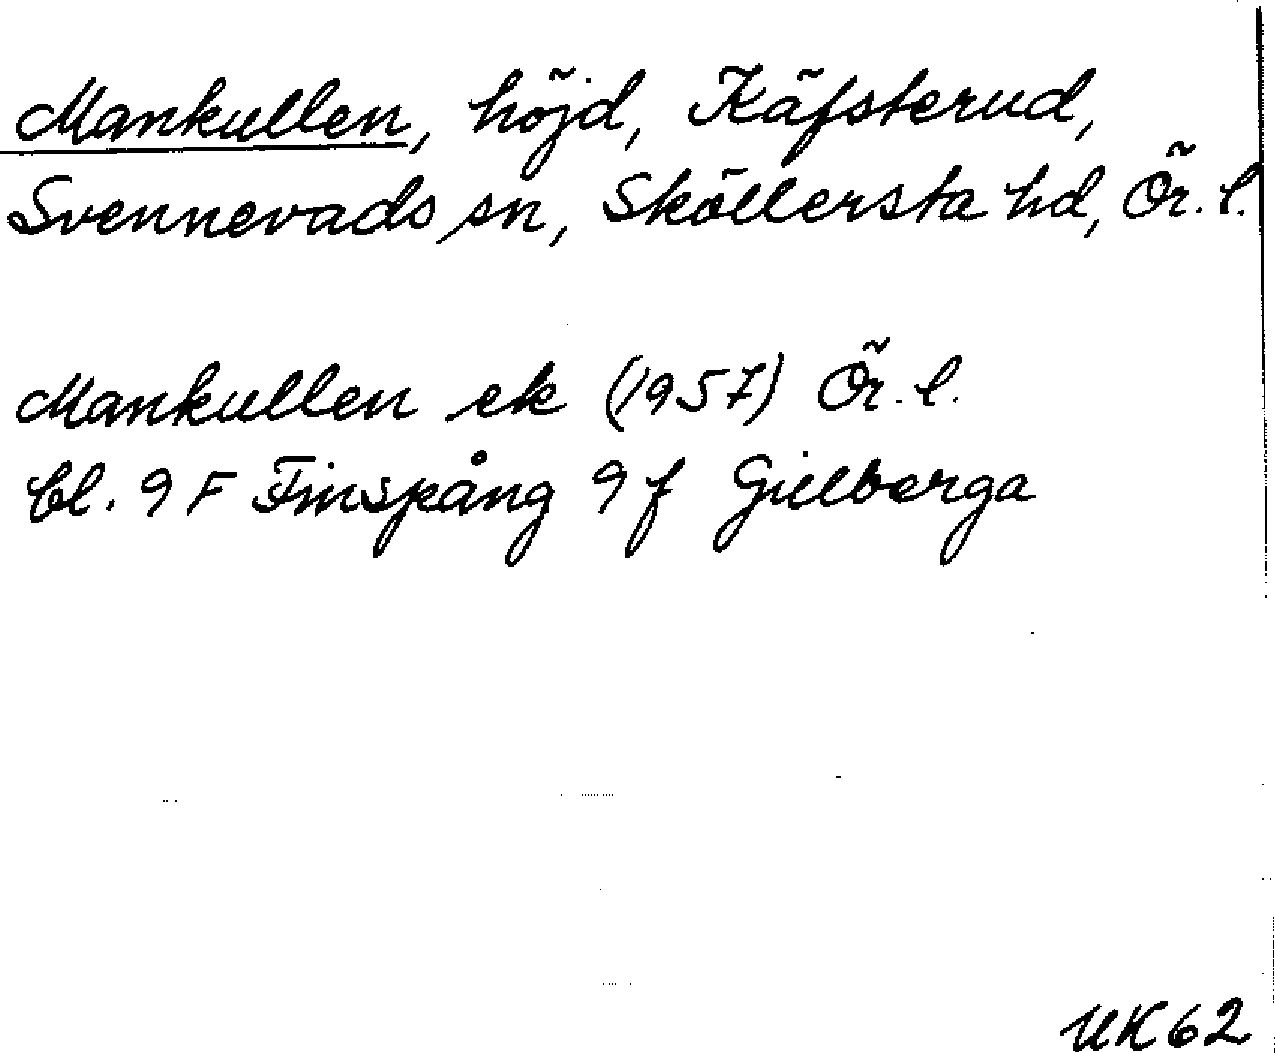 Mankullen, höjd, Käfsterud,
Svennevads sn, Sköllersta hd, Ör. l.
Mankullen ek (1957) Ör. l.
bl. 9 F Finspång 9 f Gillberga
UK62